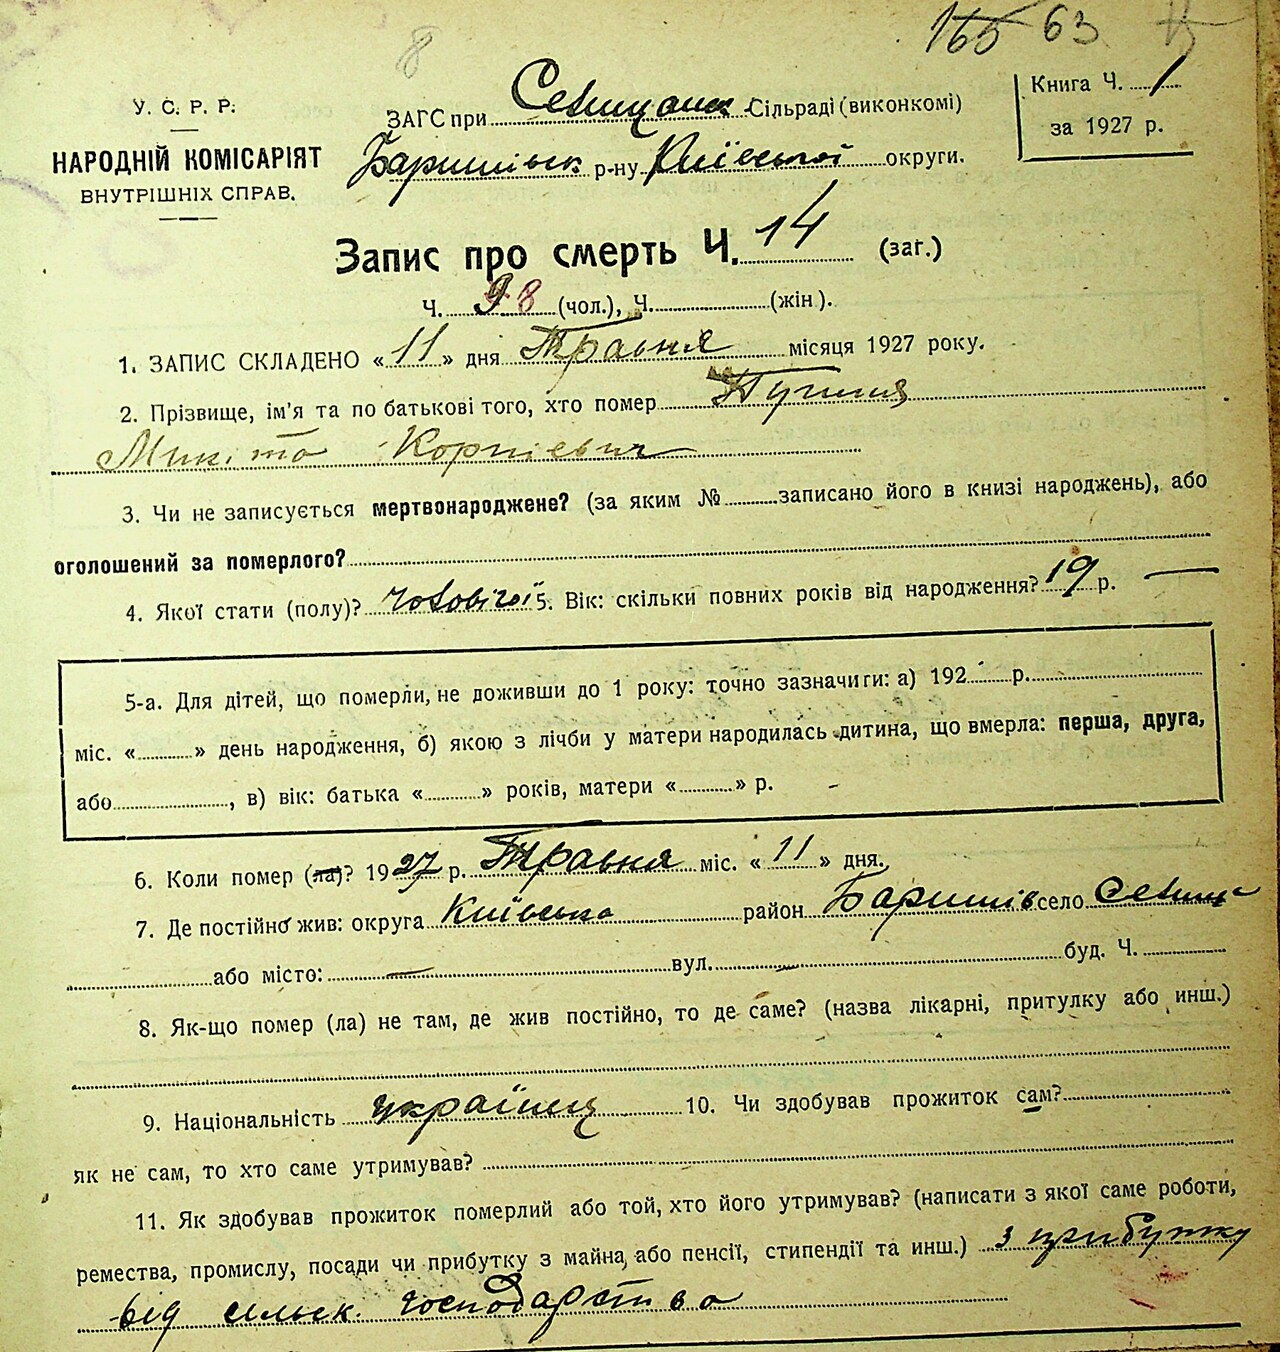 165 63
8
У. С. Р. Р.
НАРОДНІЙ КОМІСАРІЯТ
ВНУТРІШНІХ СПРАВ.
ЗАГС при Селищанск Сільраді (виконкомі)
Баришівск р-ну Київської округи.
Книга Ч. 1
за 1927 р.
Запис про смерть Ч. 14 (заг.)
Ч. 8 (чол.), Ч. (жін).
1. ЗАПИС СКЛАДЕНО «11» дня Травня місяця 1927 року.
2. Прізвище, ім'я та по батькові того, хто помер
Микіта Корнієвич
3. Чи не записується мертвонароджене? (за яким № записано його в книзі народжень), або
оголошений за померлого?
4. Якої стати (полу)? чоловічої 5. Вік: скільки повних років від народження? 19 р. —
5-а. Для дітей, що померли, не доживши до 1 року: точно зазначити: а) 192 р.
міс. « » день народження, б) якою з лічби у матери народилась дитина, що вмерла: перша, друга,
або , в) вік: батька « » років, матери « » р.
6. Коли помер (ла)? 1927 р. Травня міс. «11» дня.
7. Де постійно жив: округа Київська район Баришів село Селищ
або місто: — вул. — буд. Ч.
8. Як-що помер (ла) не там, де жив постійно, то де саме? (назва лікарні, притулку або инш.)
9. Національність українец 10. Чи здобував прожиток сам?
як не сам, то хто саме утримував?
11. Як здобував прожиток померлий або той, хто його утримував? (написати з якої саме роботи,
ремества, промислу, посади чи прибутку з майна, або пенсії, стипендії та инш.) з прибутку
від сільск. господарства